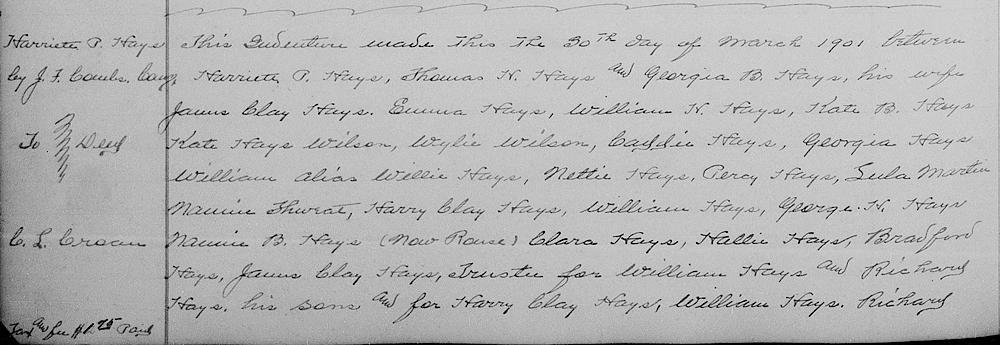 Harriette P. Hays
by J. F. Combs. Comr,
To Deed
C. L. Crocan
Tax and fee $1.75 Paid
This Indenture made This The 30th day of March 1901 between
Harriette P. Hays, Thomas H. Hays and Georgia B. Hays, his wife
James Clay Hays. Emma Hays, William H. Hays, Kate B. Hays
Kate Hays Wilson, Wylie Wilson, Caddie Hays, Georgia Hays
William alias Willie Hays, Nettie Hays, Percy Hays, Lula Martin
Nannie Thweat, Harry Clay Hays, William Hays, George. H. Hays
Nannie B. Hays (Now Rouse) Clara Hays, Hallie Hays, Bradford
Hays, James Clay Hays, Trustee for William Hays and Richard
Hays. his sons and for Harry Clay Hays, William Hays. Richard